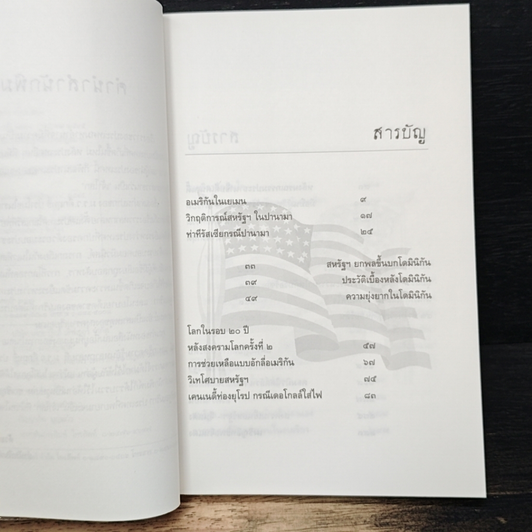 สารบัญ
อเมริกันในเยเมน ๙
วิกฤติการณ์สหรัฐฯ ในปานามา ๑๗
ท่าทีรัสเซียกรณีปานามา ๒๕
๓๓ สหรัฐฯ ยกพลขึ้นบกโดมินิกัน
๓๙ ประวัติเบื้องหลังโดมินิกัน
๔๙ ความยุ่งยากในโดมินิกัน
โลกในรอบ ๒๐ ปี
หลังสงครามโลกครั้งที่ ๒ ๕๗
การช่วยเหลือแบบอักลี่อเมริกัน ๖๗
วิเทโศบายสหรัฐฯ ๗๕
เคนเนดี้ท่องยุโรป กรณีเดอโกลล์ใส่ไฟ ๘๓